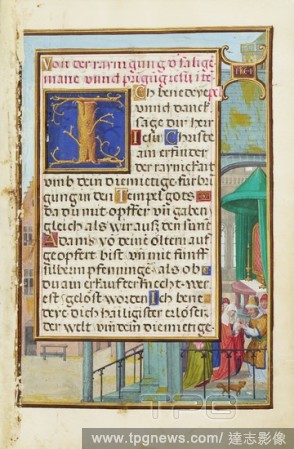 Von der raynigung d̄ salige
marie vnnd preßug iesu i te
Ich benedeye
vnnd danck
sage dir herr
Iesu Christe
ain erfinder
der raynickait
vmb dein diemietige fur bri
gung in den Tempel gots
da du mit opffer vn̄ gaben
gleich als wir auß den sune
Adams vō deinē öltern auf
geopfert bist vn̄ mit funff
silberin pfenningē als ob
du ain erkauffter knecht wer
est gelöst worden Ich bene
deye dich hailigister erlöser
der welt vm̄ dein diemietige
TPG
www.tpgnews.com / 達志影像